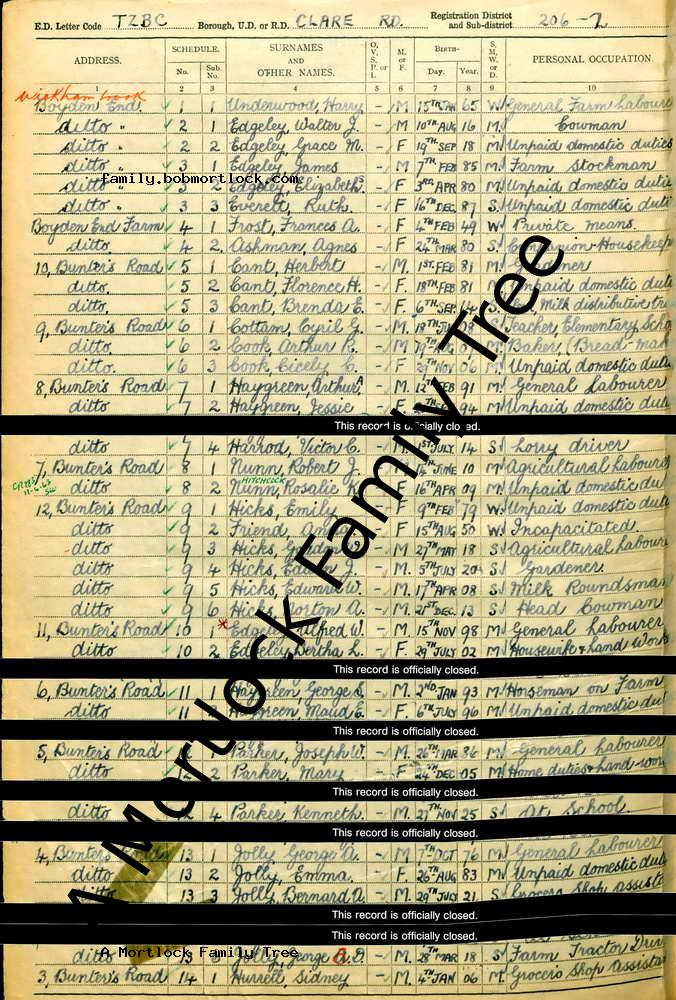 E.D. Letter Code TZBC Borough, U.D. or R.D. CLARE RD. Registration District and Sub-district 206-2
ADDRESS. SCHEDULE. No. Sub. No. SURNAMES AND OTHER NAMES. O, V, S, P, or I. M. or F. BIRTH- Day. Year. S, M, W, or D. PERSONAL OCCUPATION.
1 2 3 4 5 6 7 8 9 10
Wickhambrook
Boyden End. 1 1 Underwood, Harry - M 15TH JAN 65 W General Farm Labourer
ditto " 2 1 Edgeley, Walter J. - M 10TH AUG 16 M Cowman
ditto " 2 2 Edgeley, Grace M. - F 19TH SEP 18 M Unpaid domestic duties
ditto " 3 1 Edgeley, James - M 7TH FEB 85 M Farm Stockman
family.bobmortlock.com
ditto " 3 2 Edgeley, Elizabeth - F 3RD APR 80 M Unpaid domestic duties
ditto " 3 3 Everett, Ruth. - F 16TH DEC 87 S Unpaid domestic duties
Boyden End Farm 4 1 Frost, Frances A. - F 4TH FEB 49 W Private means.
ditto 4 2 Ashman, Agnes - F 24TH MAR 80 S Companion-Housekeeper
10, Bunter's Road 5 1 Cant, Herbert - M. 1ST FEB 81 M Gardener
ditto. 5 2 Cant, Florence H. - F. 18TH FEB 81 M Unpaid domestic duties
ditto. 5 3 Cant, Brenda E. - F. 6TH SEP 14 S. Milk distributive
9, Bunter's Road 6 1 Cottam, Cyril G. - M. 18TH 08 S Teacher, Elementary School
ditto. 6 2 Cook, Arthur R. - M M Baker, (Bread-
ditto. 6 3 Cook, Cicely C. - F 29TH NOV 06 M Unpaid domestic duties
8, Bunter's Road 7 1 Haygreen, Arthur A - M. 12TH FEB 91 M General Labourer
ditto 7 2 Haygreen, Jessie - F 94 M Unpaid domestic duties
This record is officially closed.
ditto 7 4 Harrod, Victor C. - 1ST JULY 14 S Lorry driver
7, Bunter's Road 8 1 Nunn, Robert J. 14TH JUNE 10 M Agricultural labourer
ditto 8 2 Nunn, HITCHCOCK Rosalie F 16TH APR 09 M. Unpaid domestic duties
12, Bunter's Road 9 1 Hicks, Emily F 9TH FEB 79 W Unpaid domestic duties
ditto 9 2 Friend, F 15TH AUG 50 W Incapacitated.
ditto 9 3 Hicks, M 27TH MAY 18 S Agricultural labourer
ditto 9 4 Hicks, J. - M. 5TH JULY 20 S Gardener.
ditto 9 5 Hicks, Edward W. - M. 17TH APR 08 S Milk Roundsman
ditto 9 6 Hicks, Norton A. - M. 21ST DEC. 13 S Head Cowman
11, Bunter's Road 10 1 Edgeley, Alfred W. - M. 15TH NOV 98 M General Labourer
ditto 10 2 Edgeley, Bertha L. - F. 29TH JULY 02 M Housewife & Land Work
This record is officially closed.
6, Bunter's Road 11 1 Haygreen, George S. - M. 2ND JAN 93 M Horseman on Farm
ditto 11 2 Haygreen, Maud E. - F. 6TH JULY 96 M Unpaid domestic duties
This record is officially closed.
5, Bunter's Road 1 Parker, Joseph W. - M. 26TH MAR 86 M General Labourer
ditto 2 Parker, Mary - F 24TH DEC 05 M Home duties & Land work
This record is officially closed.
ditto 12 4 Parker, Kenneth. - M. 27TH NOV 25 S At School.
This record is officially closed.
4, Bunter's Road 13 1 Jolly, George A. - M 7TH OCT 76 M General Labourer
ditto 13 2 Jolly, Emma. - F. 26TH AUG 83 M Unpaid domestic duties
ditto 13 3 Jolly, Bernard A. - M. 29TH JULY 21 S Grocers Shop assistant
This record is officially closed.
This record is officially closed.
ditto 13 Jolly, George - M. 28TH MAR 18 S Farm Tractor Driver
A Mortlock Family Tree
3, Bunter's Road 14 1 Hurrell, Sidney - M. 4TH JAN 06 M. Grocers Shop Assistant
A Mortlock Family Tree